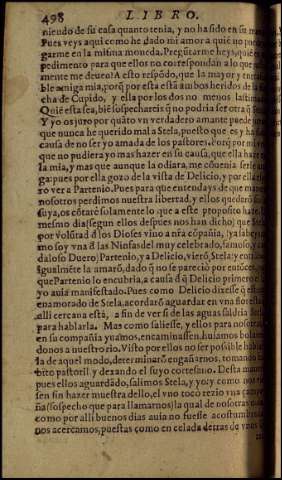 498 LIBRO.
niendo de su casa quanto tenia, y no ha sido en su ma
Pues veys aqui como he dado mi amor a quiē no pue
garme en la misma moneda. Pregūtarme heys, quiē es
pedimento para que ellos no correspondan a lo que
mente me deuen? A esto respōdo, que la mayor y entra
ble amiga mia, porq̄ por esta estā ambos heridos de la
cha de Cupido, y ella por los dos no menos lastima
Quiē esta sea, biē sospechareis q̄ no podria ser otra
Y yo os juro por quāto vn verdadero amante puede
que nunca he querido mal a Stela, puesto que es y ha
causa de no ser yo amada de los pastores. Porq̄ por mi
que no pudiera yo mas hazer en su causa, que ella haze
la mia, y mas que aunque la dixara, me cōuenia ser
ga: pues por ella gozo de la vista de Delicio, y por ella
ro ver a Partenio. Pues para que entendays de que ma
nosotros perdimos nuestra libertad, y ellos quedarō
suya, os cōtarè solamente lo que a este proposito haze.
mesmo dia (segun ellos despues nos han dicho) que Stela
por volūtad d̄ los Dioses vino a nr̄a cōpañia, (ya sabey
mo soy vna d̄ las Ninfas del muy celebrado, famoso, y
daloso Duero) Partenio, y a Delicio, vierō, Stela: y en
igualmēte la amarō, dado q̄ no se pareciò por entōce
que Partenio lo encubria, a causa d̄ q̄ Delicio primero
yo auia manifestado. Pues como Delicio dixesse q̄
enamorado de Stela, acordarō aguardar en vna floresta
alli cercana està, a fin de ver si de las aguas saldria
para hablarla. Mas como saliesse, y ellos para nosotras
en su compañia yuamos, encaminassen, huiamos
donos a nuestro rio. Visto por ellos no ser possible
la de aquel modo, determinarō engañarnos, tomando
bito pastoril, y dexando el suyo cortesano. Desta ma
pues ellos aguardādo, salimos Stela, y yo: y como nos
sen sin hazer muestra dello, el vno tocò rezio vna
ña (sospecho que para llamarnos) la qual de nosotras
como por alli buenos dias auia no fuesse acostumbra
nos acercamos, puestas como en celada detras de vnos